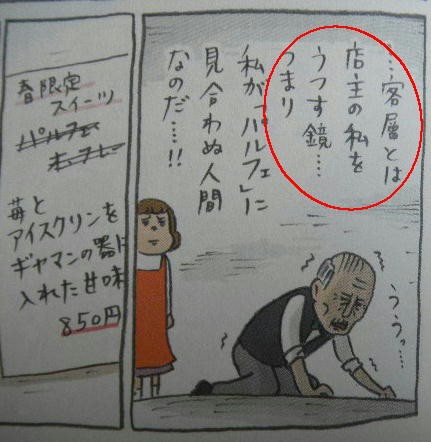 …客層とは
店主の私を
うつす鏡……
つまり
私が「パルフェ」に
見合わぬ人間
なのだ……!!
ううっ…
春限定
スイーツ
パルフェ
苺と
アイスクリンを
ギヤマンの器に
入れた甘味
850円